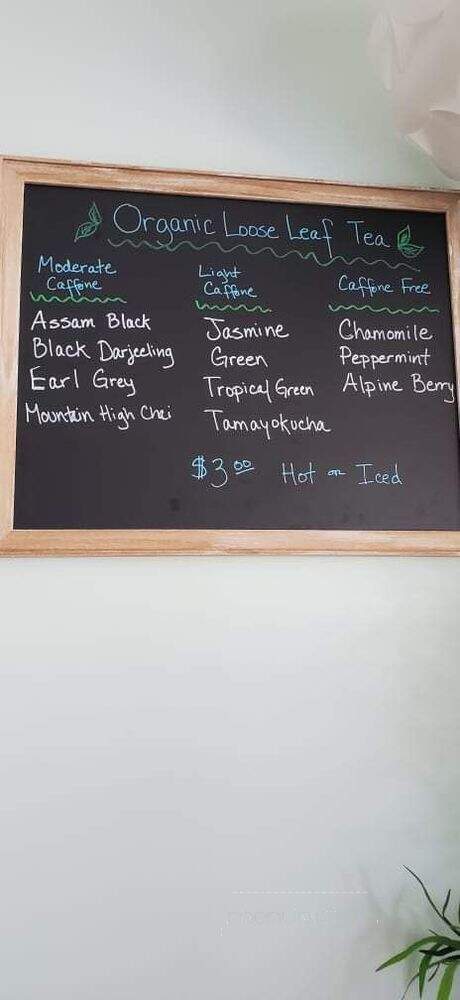 Organic Loose Leaf Tea
Moderate
Caffine
Assam Black
Black Darjeeling
Earl Grey
Mountain High Chai
Light
Caffine
Jasmine
Green
Tropical Green
Tamayokucha
Caffine Free
Chamomile
Peppermint
Alpine Berry
$3.00 Hot or Iced